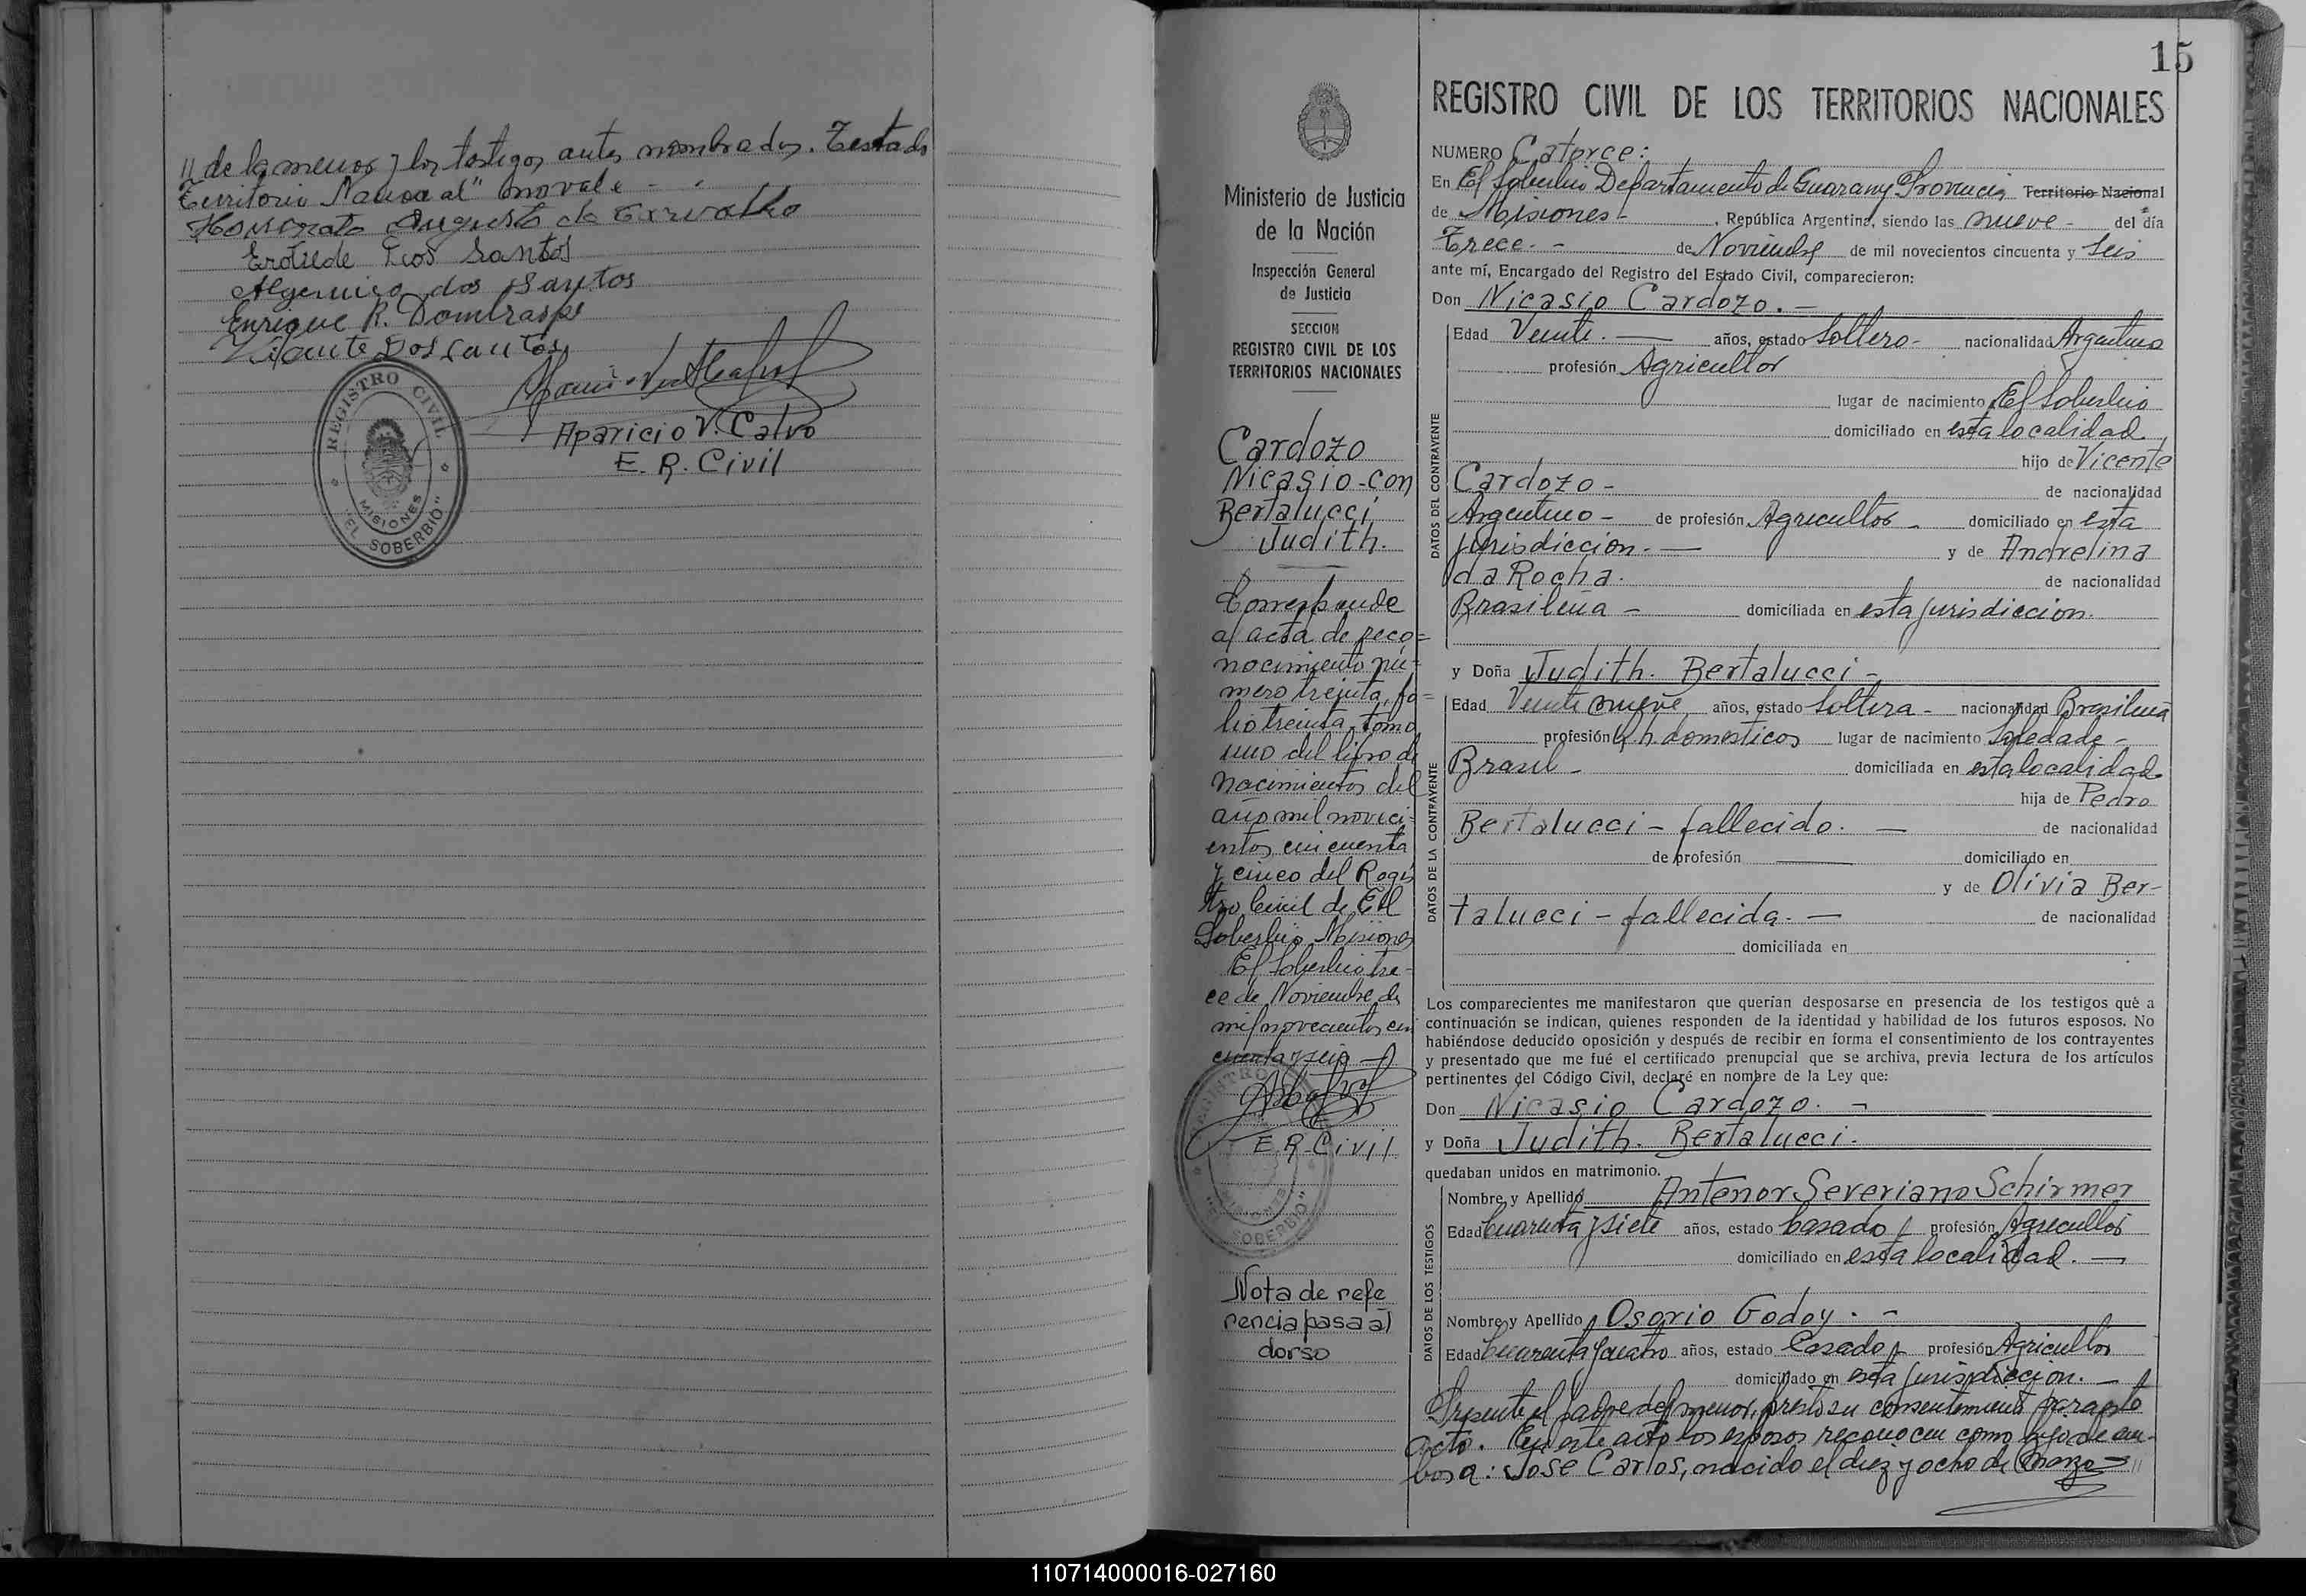 // de la menor y los testigos antes nombrados. Testado
"Territorio Nacional" no vale
Honorato Augusto de Carvalho
Erotilde Dos Santos
Algemiro dos Santos
Enrique R. Dombraspe
Dos Santos
REGISTRO CIVIL
MISIONES
"EL SOBERBIO"
Aparicio V. Calvo
E. R. Civil
15
REGISTRO CIVIL DE LOS TERRITORIOS NACIONALES
Ministerio de Justicia
de la Nación
Inspección General
de Justicia
SECCION
REGISTRO CIVIL DE LOS
TERRITORIOS NACIONALES
Cardozo
Nicasio-con
Bertalucci
Judith.
Corresponde
al acta de reco=
nocimiento nú=
mero treinta, fo=
lio treinta, tomo
uno del libro de
nacimientos del
año mil noveci=
entos cincuenta
y cinco del Regis
tro Civil de El
Soberbio Misiones
El Soberbio tre-
ce de Noviembre de
mil novecientos cin
cuenta y seis
E. R. Civil
REGISTRO
MISIONES
"EL SOBERBIO"
Nota de refe
rencia pasa al
dorso
NUMERO Catorce:
En El Soberbio Departamento de Guarany Provincia Territorio Nacional
de Misiones - , República Argentina, siendo las nueve - del día
Trece. - de Noviembre de mil novecientos cincuenta y seis
ante mí, Encargado del Registro del Estado Civil, comparecieron:
Don Nicasio Cardozo. -
DATOS DEL CONTRAYENTE
Edad Veinte. - años, estado Soltero - nacionalidad Argentino
profesión Agricultor
lugar de nacimiento El Soberbio
domiciliado en esta localidad
hijo de Vicente
Cardozo - de nacionalidad
Argentino - de profesión Agricultor - domiciliado en esta
jurisdicción. - y de Andrelina
da Rocha. de nacionalidad
Brasileña - domiciliada en esta jurisdicción.
y Doña Judith. Bertalucci -
DATOS DE LA CONTRAYENTE
Edad Veinte nueve años, estado Soltera - nacionalidad Brasileña
profesión q. h. domesticos lugar de nacimiento Soledade -
Brasil - domiciliada en esta localidad
hija de Pedro
Bertalucci - fallecido. - de nacionalidad
de profesión domiciliado en
y de Olivia Ber-
talucci - fallecida. - de nacionalidad
domiciliada en
Los comparecientes me manifestaron que querían desposarse en presencia de los testigos que a
continuación se indican, quienes responden de la identidad y habilidad de los futuros esposos. No
habiéndose deducido oposición y después de recibir en forma el consentimiento de los contrayentes
y presentado que me fué el certificado prenupcial que se archiva, previa lectura de los artículos
pertinentes del Código Civil, declaré en nombre de la Ley que:
Don Nicasio Cardozo. -
y Doña Judith. Bertalucci.
quedaban unidos en matrimonio.
DATOS DE LOS TESTIGOS
Nombre y Apellido Antenor Severiano Schirmer
Edad Cuarenta y siete años, estado Casado profesión Agricultor
domiciliado en esta localidad. -
Nombre y Apellido Osorio Godoy. -
Edad Cuarenta y cuatro años, estado Casado profesión Agricultor
domiciliado en esta jurisdicción. -
Presente el padre del menor, presto su consentimiento para este
acto. En este acto los esposos reconocen como hijo de am-
bos a: José Carlos, nacido el diez y ocho de Marzo - //
110714000016-027160